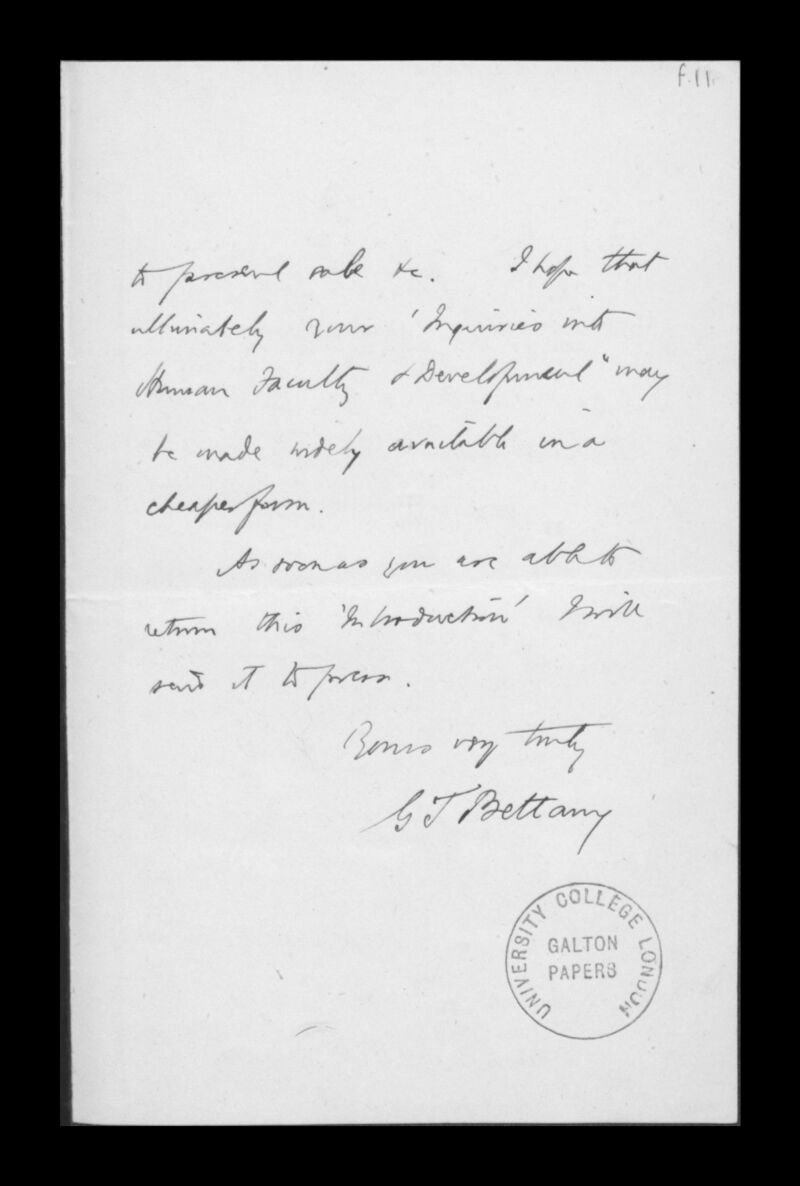 f.11.
to present sale &c. I hope that
ultimately your 'Inquiries into
Human Faculty & Development" may
be made widely available in a
cheaper form.
As soon as you are able to
return this 'Introduction' I will
send it to press.
Yours very truly
G T Bettany
UNIVERSITY COLLEGE LONDON
GALTON
PAPERS